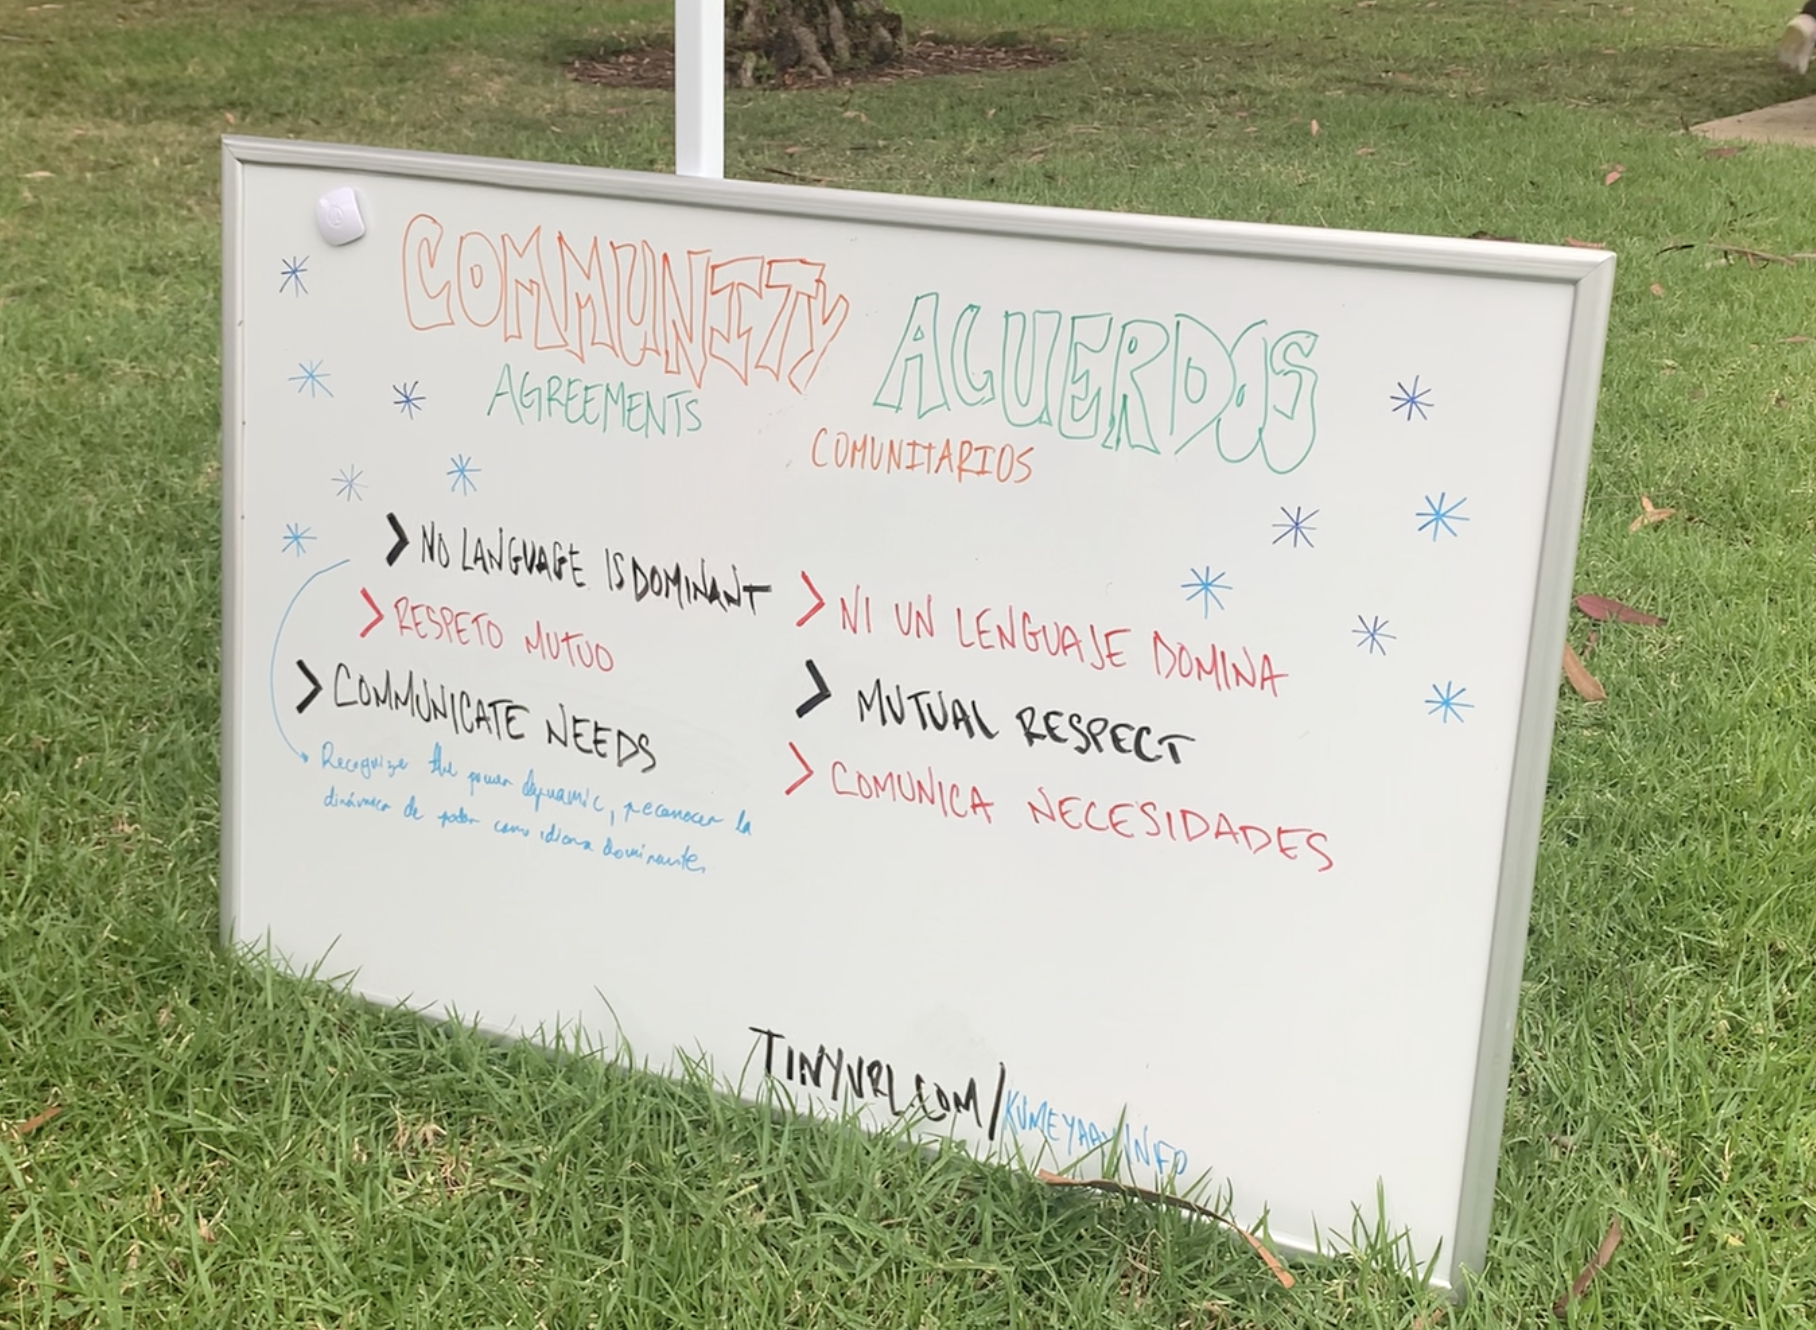 COMMUNITY
AGREEMENTS
ACUERDOS
COMUNITARIOS
> NO LANGUAGE IS DOMINANT
> RESPETO MUTUO
> COMMUNICATE NEEDS
Recognize the power dynamic, reconocer la
dinámica de poder como idioma dominante
> NI UN LENGUAJE DOMINA
> MUTUAL RESPECT
> COMUNICA NECESIDADES
TINYURL.COM/KUMEYAAYINFO